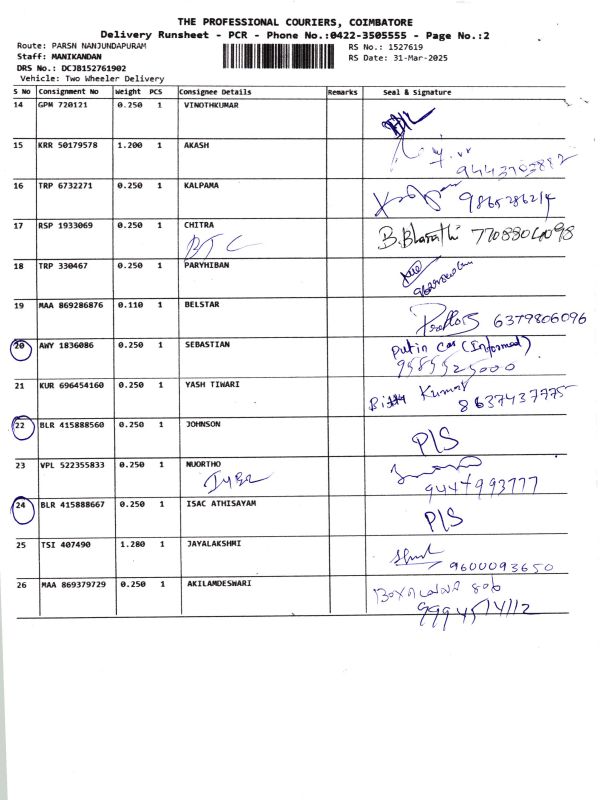 THE PROFESSIONAL COURIERS, COIMBATORE
Delivery Runsheet - PCR - Phone No.:0422-3505555 - Page No.:2
Route: PARSN NANJUNDAPURAM RS No.: 1527619
Staff: MANIKANDAN RS Date: 31-Mar-2025
DRS No.: DCJB152761902
Vehicle: Two Wheeler Delivery
S No Consignment No Weight PCS Consignee Details Remarks Seal & Signature
14 GPM 720121 0.250 1 VINOTHKUMAR
15 KRR 50179578 1.200 1 AKASH
16 TRP 6732271 0.250 1 KALPAMA 9865286214
17 RSP 1933069 0.250 1 CHITRA B.Bharathi 7708804098
BTC
18 TRP 330467 0.250 1 PARYHIBAN
19 MAA 869286876 0.110 1 BELSTAR 6379806096
20 AWY 1836086 0.250 1 SEBASTIAN putin car (Informed)
9585525000
21 KUR 696454160 0.250 1 YASH TIWARI Kumar 8637437775
22 BLR 415888560 0.250 1 JOHNSON P/S
23 VPL 522355833 0.250 1 NUORTHO 9447993777
24 BLR 415888667 0.250 1 ISAC ATHISAYAM P/S
25 TSI 407490 1.280 1 JAYALAKSHMI 9600093650
26 MAA 869379729 0.250 1 AKILAMDESWARI
9994514112